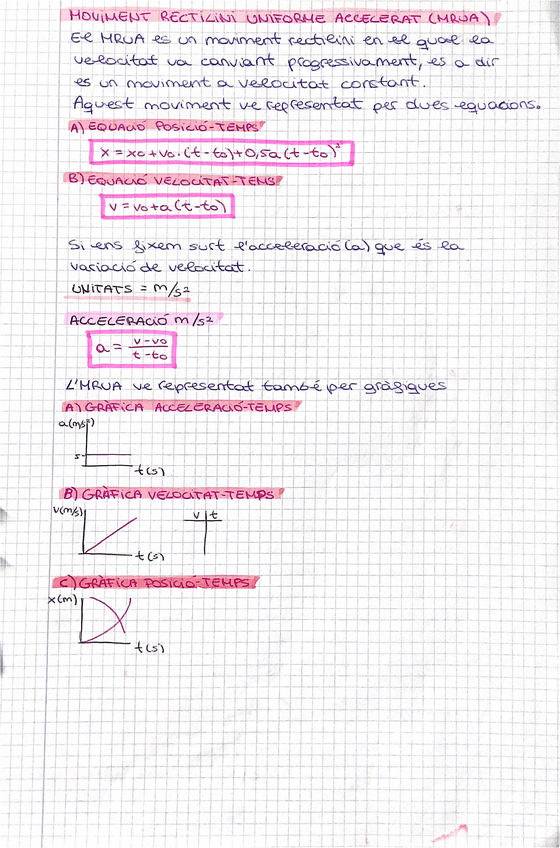 MOVIMENT RECTILINI UNIFORME ACCELERAT (MRUA)
El MRUA és un moviment rectilini en el qual la
velocitat va canviant progressivament, és a dir
és un moviment a velocitat constant.
Aquest moviment ve representat per dues equacions.
A) EQUACIÓ POSICIÓ-TEMPS
x = x0 + v0 · (t - t0) + 0,5a (t - t0)²
B) EQUACIÓ VELOCITAT-TEMS
v = v0 + a (t - t0)
Si ens fixem surt l'acceleració (a) que és la
variació de velocitat.
UNITATS = m/s²
ACCELERACIÓ m/s²
a = v - v0 / t - t0
L'MRUA ve representat també per gràfiques
A) GRÀFICA ACCELERACIÓ-TEMPS
a (m/s²)
5
t (s)
B) GRÀFICA VELOCITAT-TEMPS
v (m/s)
v t
t (s)
C) GRÀFICA POSICIÓ-TEMPS
x (m)
t (s)